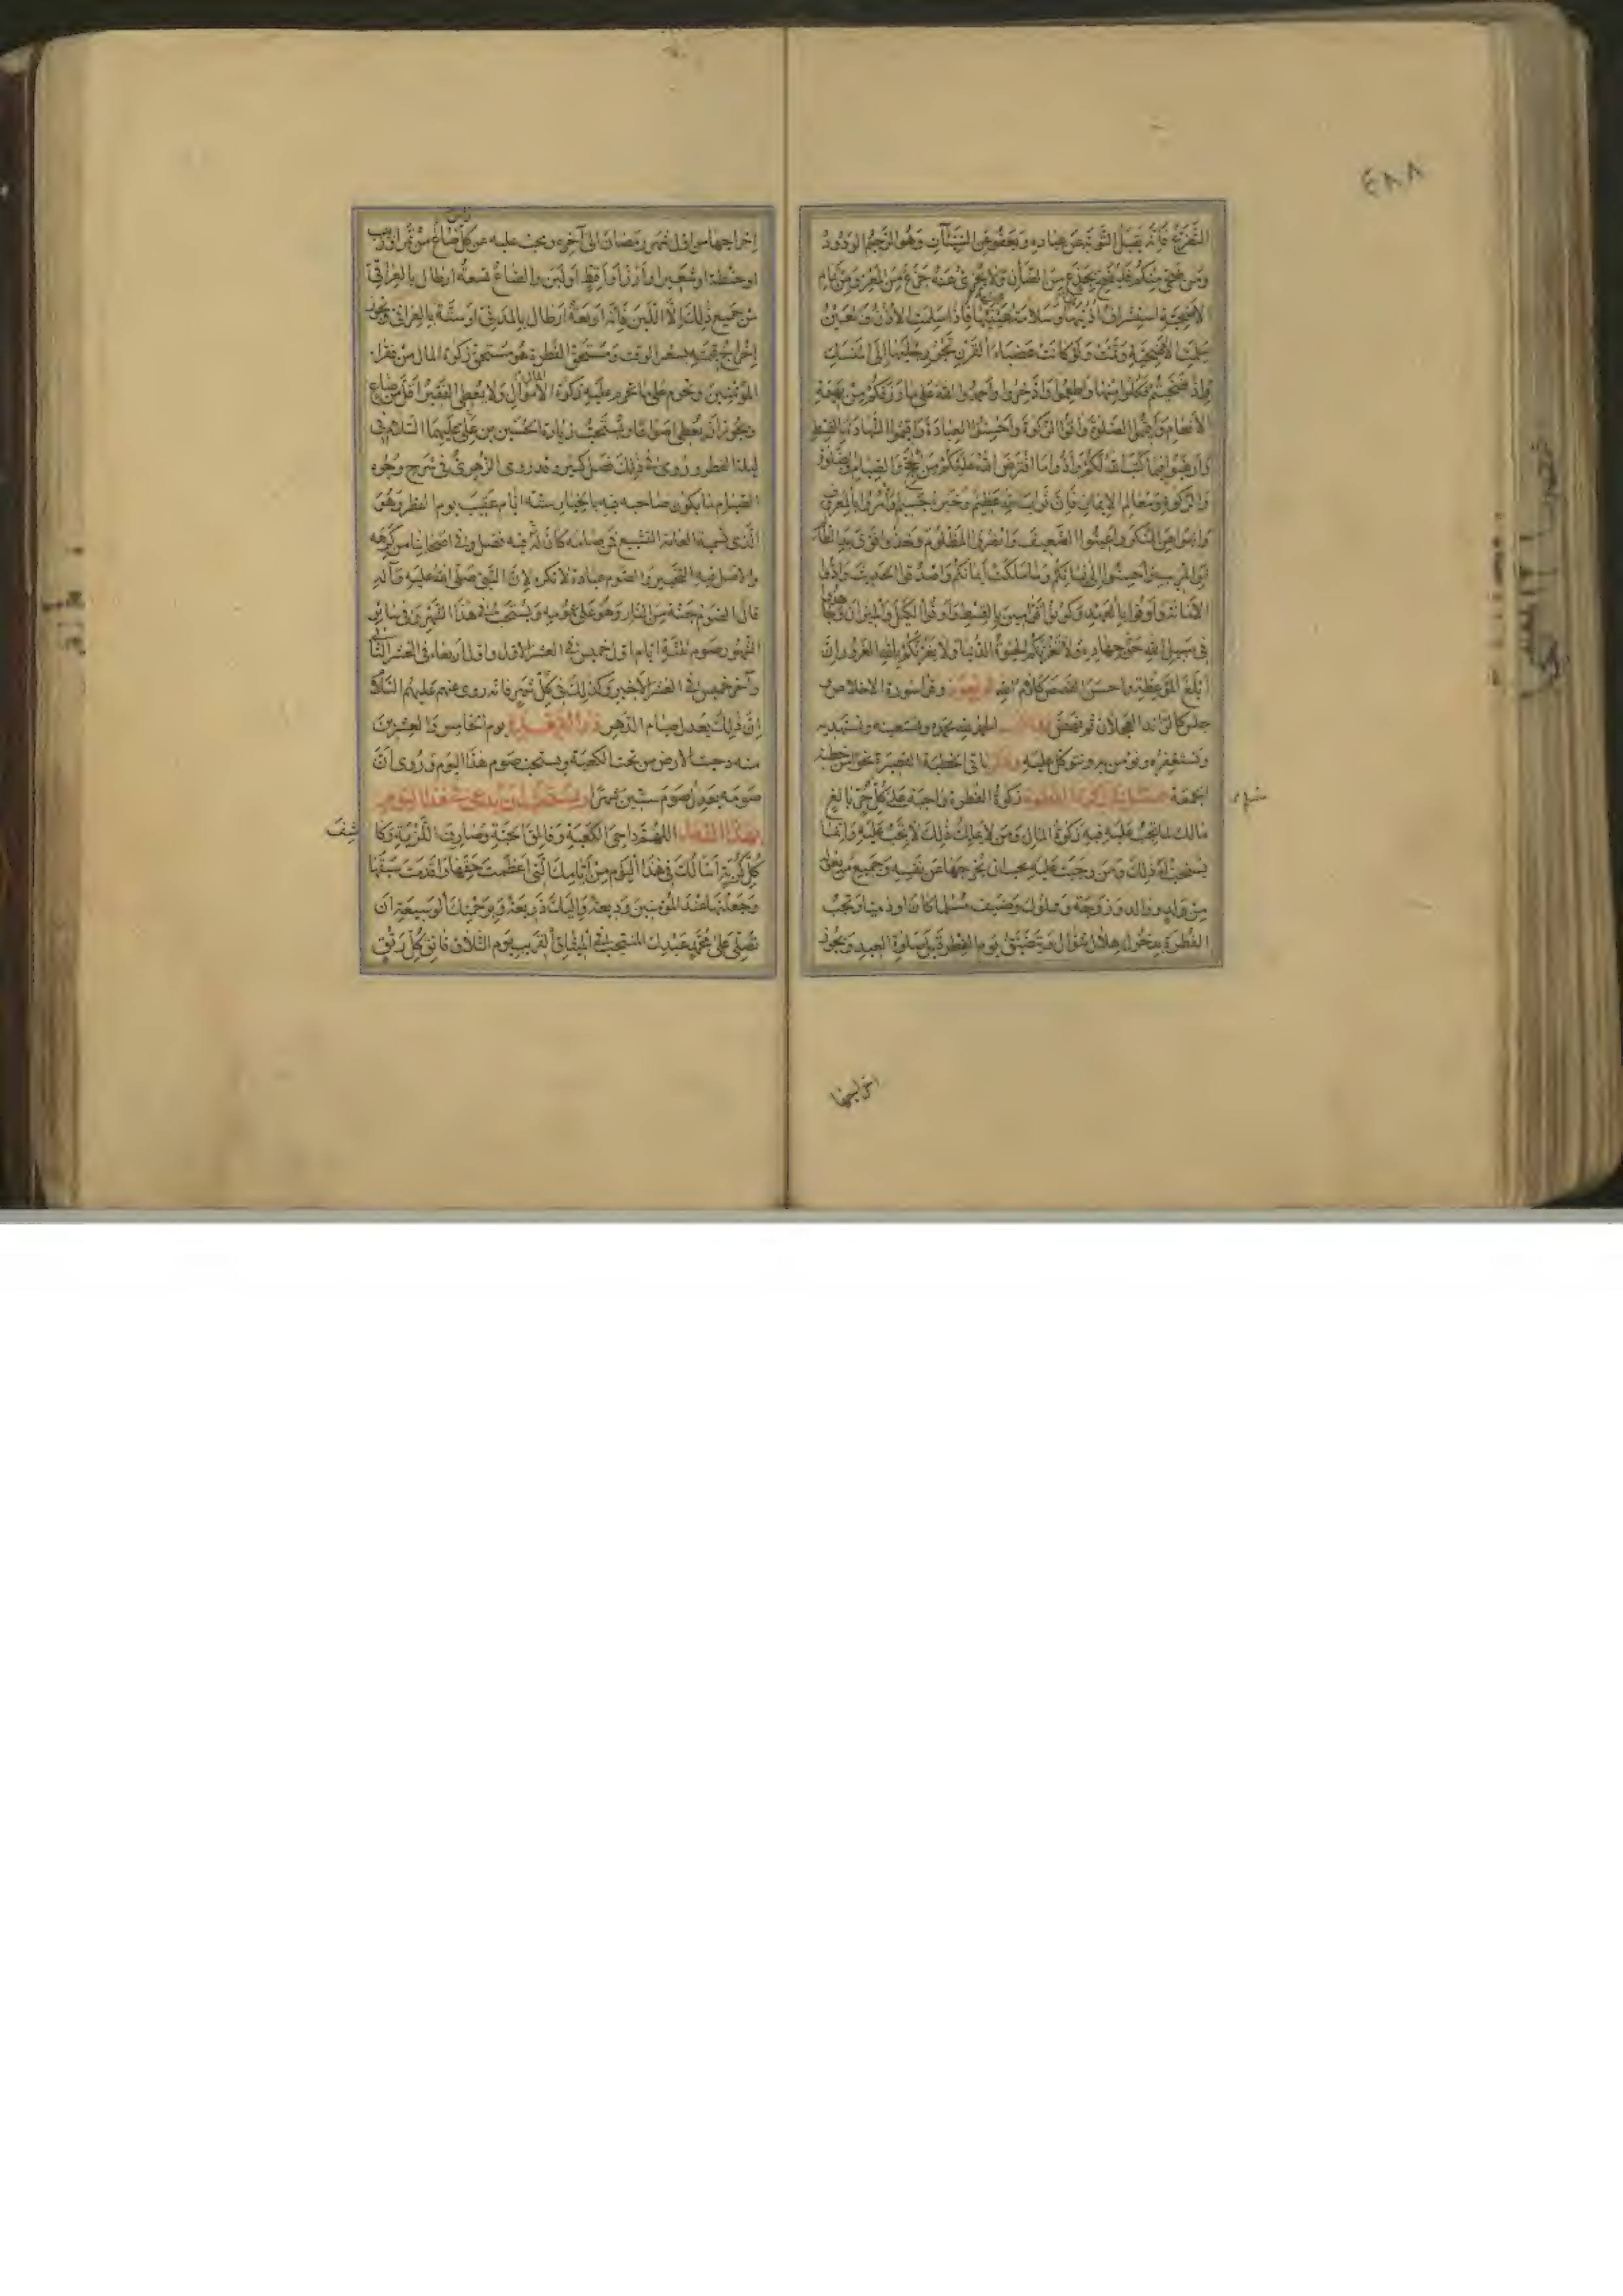 ٤٨٨
التضرع فانه يقبل التوبة عن عباده ويعفو عن السيئات وهو الرحيم الودود
ومن ضحى منكم فليضح بجذع من الضأن ولا يجزى عنه جذع من المعز ومن تمام
الأضحية استشراف اذنها وسلامة عينها فاذا سلمت الأذن والعين
سلمت الأضحية وتمت ولو كانت عضباء القرن تجر رجليها إلى المنسك
وإذا ضحيتم فكلوا منها واطعموا وادخروا واحمدوا الله على ما رزقكم من بهيمة
الأنعام وأقيموا الصلوة وآتوا الزكوة وأحسنوا العبادة وأقيموا الشهادة بالقسط
وارغبوا فيما كتب الله لكم وأدوا ما افترض الله عليكم من الحج والصيام والصلوة
والزكوة ومعالم الإيمان فإن ثواب الله عظيم وخيره جسيم وأمروا بالمعروف
وانهوا عن المنكر وأعينوا الضعيف وانصروا المظلوم وخذوا فوق يد الظالم
أو المريب وأحسنوا إلى نسائكم وما ملكت أيمانكم واصدقوا الحديث وأدوا
الأمانة وأوفوا بالعهد وكونوا قوامين بالقسط وأوفوا الكيل والميزان وجاهدوا
في سبيل الله حق جهاده ولا تغرنكم الحيوة الدنيا ولا يغرنكم بالله الغرور إن
أبلغ الموعظة وأحسن القصص كلام الله ثم تعوذ وقرأ سورة الاخلاص و
جلس كالرائد العجلان ثم نهض فقال الحمد لله نحمده ونستعينه ونستهديه
ونستغفره ونؤمن به ونتوكل عليه وذكر باقى الخطبة القصيرة نحو من خطبة
الجمعة زكوة الفطرة واجبة على كل حر بالغ
مالك لما تجب عليه فيه زكوة المال ومن لا يملك ذلك لا تجب عليه وإنما
يستحب له ذلك ومن وجبت عليه يجب ان يخرجها عن نفسه وجميع من يعوله
من ولد ووالد وزوجة ومملوك وضيف مسلما كان او ذميا وتجب
الفطرة بدخول هلال شوال وتتضيق يوم الفطرة قبل صلوة العيد ويجوز
اخراجها
إخراجها من اول شهر رمضان الى آخره ويجب عليه عن كل رأس صاع من تمر او زبيب
او حنطة او شعير او أرز أو أقط او لبن والصاع تسعة ارطال بالعراقي
من جميع ذلك إلا اللبن فإنه أربعة أرطال بالمدني او ستة بالعراقي ويجوز
إخراج قيمته بسعر الوقت ومستحق الفطرة هو مستحق زكوة المال من فقراء
المؤمنين وتحرم على من تحرم عليه زكوة الأموال ولا يعطى الفقير أقل من صاع
ويجوز أن يعطى اصواعا ويستحب زيارة الحسين بن علي عليهما السلام في
ليلة الفطر وروى في ذلك فضل كثير وقد روى الزهري في شرح وجوه
الصيام ما يكون صاحبه فيه بالخيار ستة أيام عقيب يوم الفطر وهو
الذى تسميه العامة التشييع فمن صامه كان له فيه فضل وفي اصحابنا من كرهه
والأصل فيه التخيير والصوم عبادة لا تكره لإن النبي صلى الله عليه وآله
قال الصوم جنة من النار وهو على عمومه ويستحب في هذا الشهر وفي سائر
الشهور صوم ثلثة ايام اول خميس في العشر الاول واول اربعاء في العشر الثاني
وآخر خميس في العشر الأخير وكذلك في كل شهر فانه روى عنهم عليهم السلام
إن ذلك يعدل صيام الدهر ذو القعدة يوم الخامس والعشرين
منه دحيت الأرض من تحت الكعبة ويستحب صوم هذا اليوم وروى أن
صومه يعدل صوم ستين شهرا ويستحب أن يدعى في هذا اليوم
بهذا الدعاء اللهم داحى الكعبة وفالق الحبة وصارف اللزبة وكاشف
كل كربة أسألك في هذا اليوم من أيامك التي أعظمت حقها وأقدمت سبقها
وجعلتها عند المؤمنين وديعة وإليك ذريعة وبرحمتك الوسيعة أن
تصلي على محمد عبدك المنتجب في الميثاق القريب يوم التلاق فاتق كل رتق